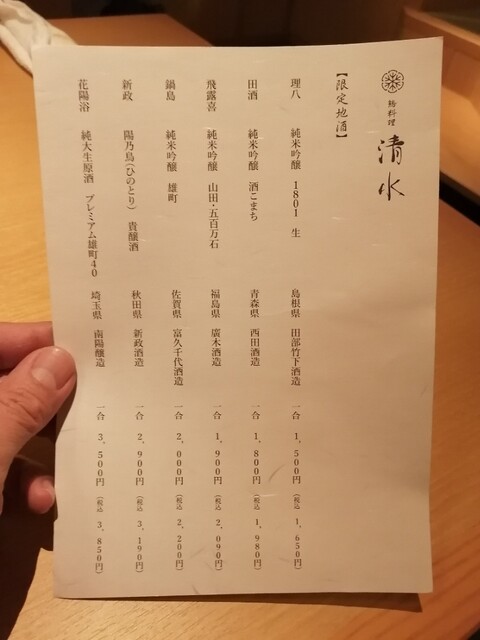 膳料理 清水
【限定地酒】
理八 純米吟醸 1801 生 島根県 田部竹下酒造 一合 1,500円 (税込 1,650円)
田酒 純米吟醸 酒こまち 青森県 西田酒造 一合 1,800円 (税込 1,980円)
飛露喜 純米吟醸 山田・五百万石 福島県 廣木酒造 一合 1,900円 (税込 2,090円)
鍋島 純米吟醸 雄町 佐賀県 富久千代酒造 一合 2,000円 (税込 2,200円)
新政 陽乃鳥(ひのとり) 貴醸酒 秋田県 新政酒造 一合 2,900円 (税込 3,190円)
花陽浴 純大生原酒 プレミアム雄町40 埼玉県 南陽醸造 一合 3,500円 (税込 3,850円)